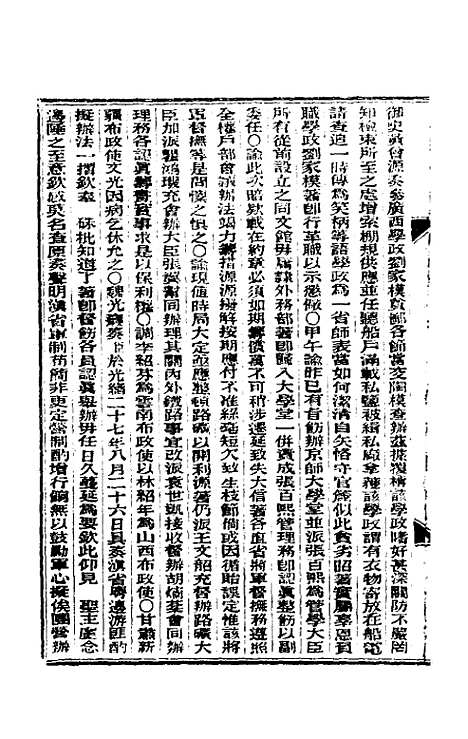 御史黃曾源奏參廣西學政劉家模貪鄙各節當交陶模查辦茲據覆稱該學政嗜好甚深關防不嚴罔
知檢束所至之處增索棚規供應並任聽船戶滿載私鹽被緝私廠拿獲該學政謂有衣物寄放在船電
請查追一時傳為笑柄等語學政為一省師表當如何潔清自矢恪守官箴似此貪劣昭著實屬辜恩負
職學政劉家模著即行革職以示懲儆〇甲午諭昨已有旨飭辦京師大學堂並派張百熙為管學大臣
所有從前設立之同文館毋庸隸外務部著即歸入大學堂一併責成張百熙管理務即認真整飭以副
委任〇諭此次賠款載在約章必須如期籌償萬不可稍涉遲延致失大信著各直省將軍督撫務遵照
全權戶部會議辦法竭力籌措源源撥解按期應付不准絲毫短欠致生枝節倘或因循貽誤定惟該將
軍督撫等是問懍之慎之〇諭現值時局大定亟應整頓路礦以開利源著仍派王文韶充督辦路礦大
臣加派瞿鴻禨充會辦大臣張翼幫同辦理其關內外鐵路事宜改派袁世凱接收督辦胡燏棻會同辦
理務各認真籌畫實事求是以保利權〇調李紹芬為雲南布政使以林紹年為山西布政使〇甘肅新
疆布政使文光因病乞休允之〇魏光燾奏 於光緒二十七年八月二十六日具奏滇省籌邊游匪酌
擬辦法一摺欽奉 硃批知道了著即督飭各員認真舉辦毋任日久蔓延為要欽此仰見 聖主廑念
邊陲之至意欽感莫名查原奏聲明滇省軍制苟簡非更定營制酌增行餉無以鼓勵軍心擬俟團營辦